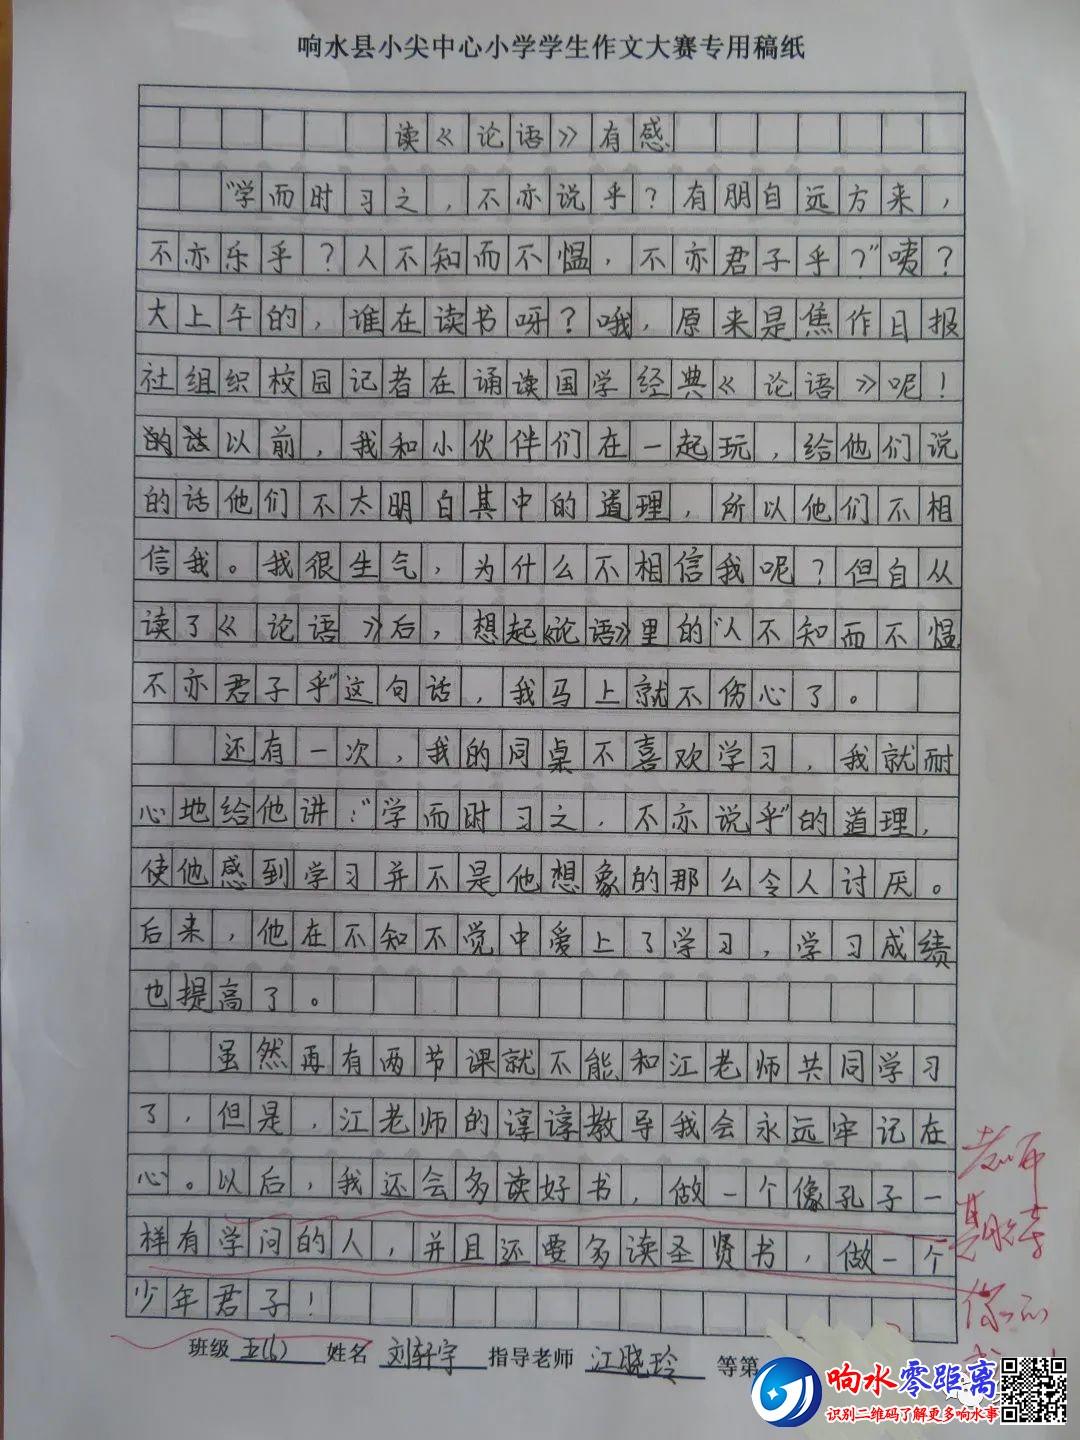 响水县小尖中心小学学生作文大赛专用稿纸
读《论语》有感
“学而时习之，不亦说乎？有朋自远方来，
不亦乐乎？人不知而不愠，不亦君子乎？”咦？
大上午的，谁在读书呀？哦，原来是焦作日报
社组织校园记者在诵读国学经典《论语》呢！
以前，我和小伙伴们在一起玩，给他们说
的话他们不太明白其中的道理，所以他们不相
信我。我很生气，为什么不相信我呢？但自从
读了《论语》后，想起《论语》里的“人不知而不愠，
不亦君子乎”这句话，我马上就不伤心了。
还有一次，我的同桌不喜欢学习，我就耐
心地给他讲：“学而时习之，不亦说乎”的道理，
使他感到学习并不是他想象的那么令人讨厌。
后来，他在不知不觉中爱上了学习，学习成绩
也提高了。
虽然再有两节课就不能和江老师共同学习
了，但是，江老师的谆谆教导我会永远牢记在
心。以后，我还会多读好书，做一个像孔子一
样有学问的人，并且还要多读圣贤书，做一个
少年君子！
老师
期待
你的
班级 五(6) 姓名 刘轩宇 指导老师 江晓玲 等第
响水零距离
识别二维码了解更多响水事